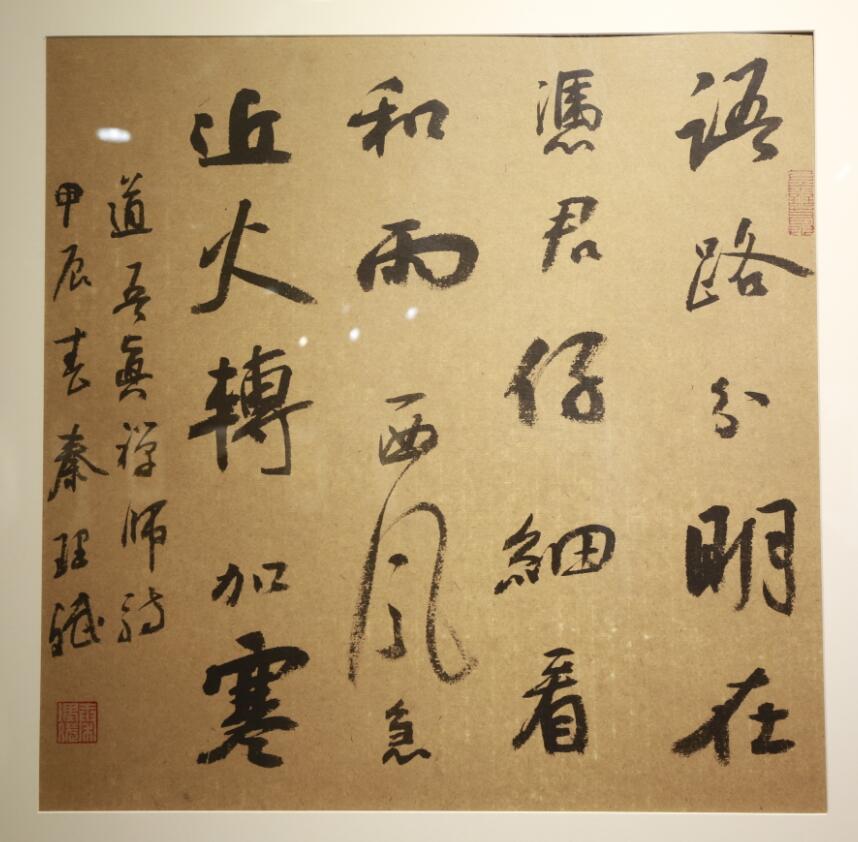 語路分明在
憑君仔細看
和雨西風急
近火轉加寒
道吾真禅師詩
甲辰春秦理斌